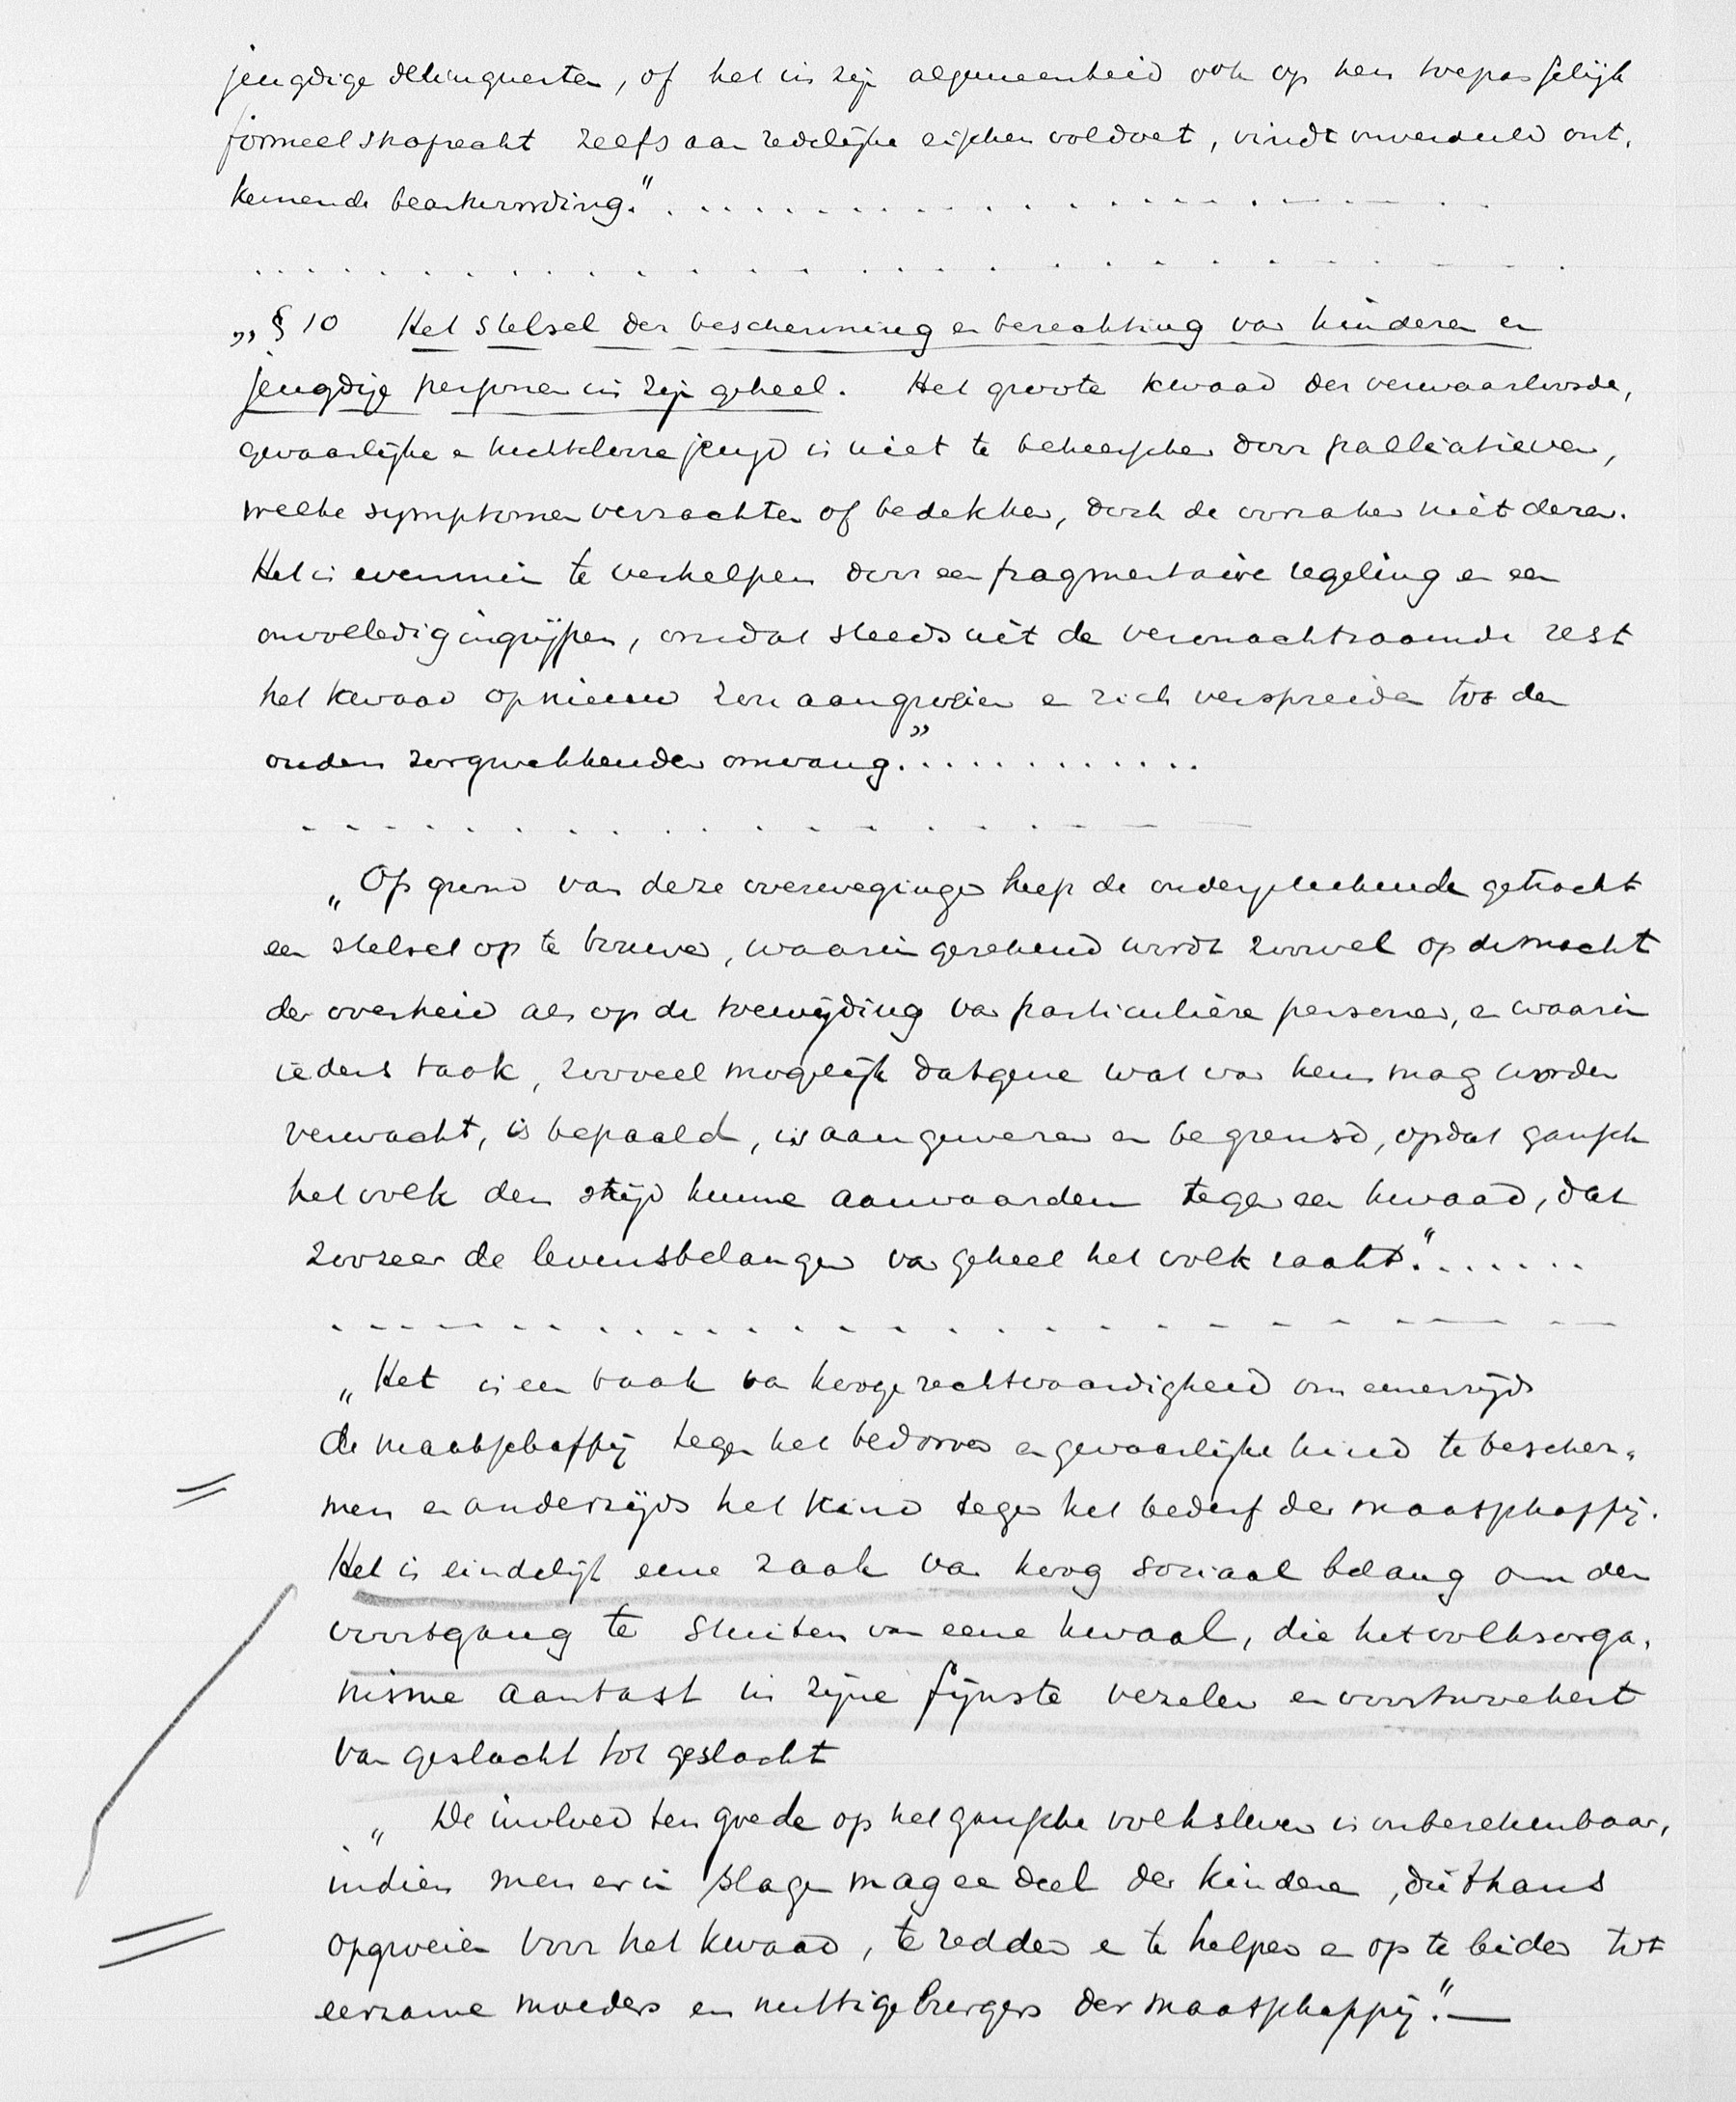 jeugdige delinquenten, of het in zijn algemeenheid ook op hen toepasselijk
formeel strafrecht zelfs aan redelijke eischen voldoet, vindt onverdeeld ont-
kennende beantwoording." . . . . . . . . . . . . . . . . . . . .
. . . . . . . . . . . . . . . . . . . . . . . .
„§ 10 Het stelsel der bescherming en berechting van kinderen en
jeugdige personen in zijn geheel. Het groote kwaad der verwaarloosde,
gevaarlijke en tuchtelooze jeugd is niet te beheerschen door palliatieven,
welke symptomen verzachten of bedekken, doch de oorzaken niet deren.
Het is evenmin te verhelpen door een fragmentaire regeling en een
onvolledig ingrijpen, omdat steeds uit de veronachtzaamde rest
het kwaad opnieuw zou aangroeien en zich verspreiden tot den
ouden zorgwekkenden omvang." . . . . . . . . . . . .
. . . . . . . . . . . . . . . . . .
„Op grond van deze overwegingen heeft de ondergeteekende getracht
een stelsel op te bouwen, waarin gerekend wordt zoowel op de macht
der overheid als op de toewijding van particuliere personen, en waarin
ieders taak, zooveel mogelijk datgene wat van hem mag worden
verwacht, is bepaald, is aangewezen en begrensd, opdat gansch
het volk den strijd kunne aanvaarden tegen een kwaad, dat
zoozeer de levensbelangen van geheel het volk raakt." . . . . . . .
. . . . . . . . . . . . . . . . . . . . . . .
„Het is een taak van hooge rechtvaardigheid om eenerzijds
de maatschappij tegen het bedorven en gevaarlijke kind te bescher-
men en anderzijds het kind tegen het bederf der maatschappij.
Het is eindelijk eene zaak van hoog sociaal belang om den
voortgang te stuiten van eene kwaal, die het volksorga-
nisme aantast in zijne fijnste vezelen en voortwoekert
van geslacht tot geslacht
„De invloed ten goede op het gansche volksleven is onberekenbaar,
indien men er in slagen mag een deel der kinderen, die thans
opgroeien voor het kwaad, te redden en te helpen en op te leiden tot
eerzame moeders en nuttige burgers der maatschappij." —